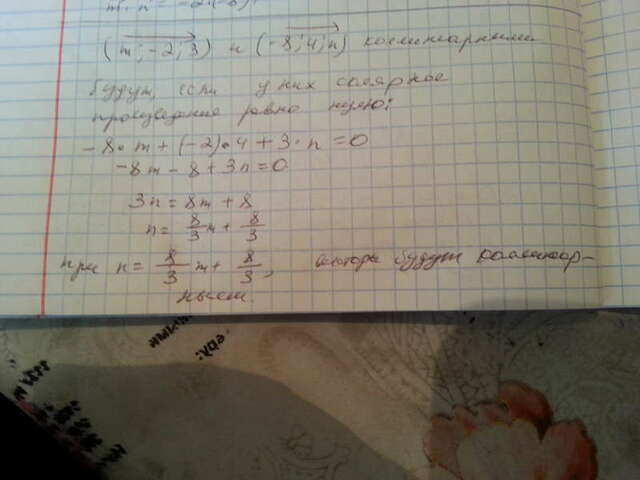 m · n = -2 · (-6)
(m; -2; 3) и (-8; 4; n) коллинеарными
будут, если у них скалярное
произведение равно нулю:
-8 · m + (-2) · 4 + 3 · n = 0
-8m - 8 + 3n = 0
3n = 8m + 8
n = 8/3 m + 8/3
при n = 8/3 m + 8/3, векторы будут коллинеар-
ными.